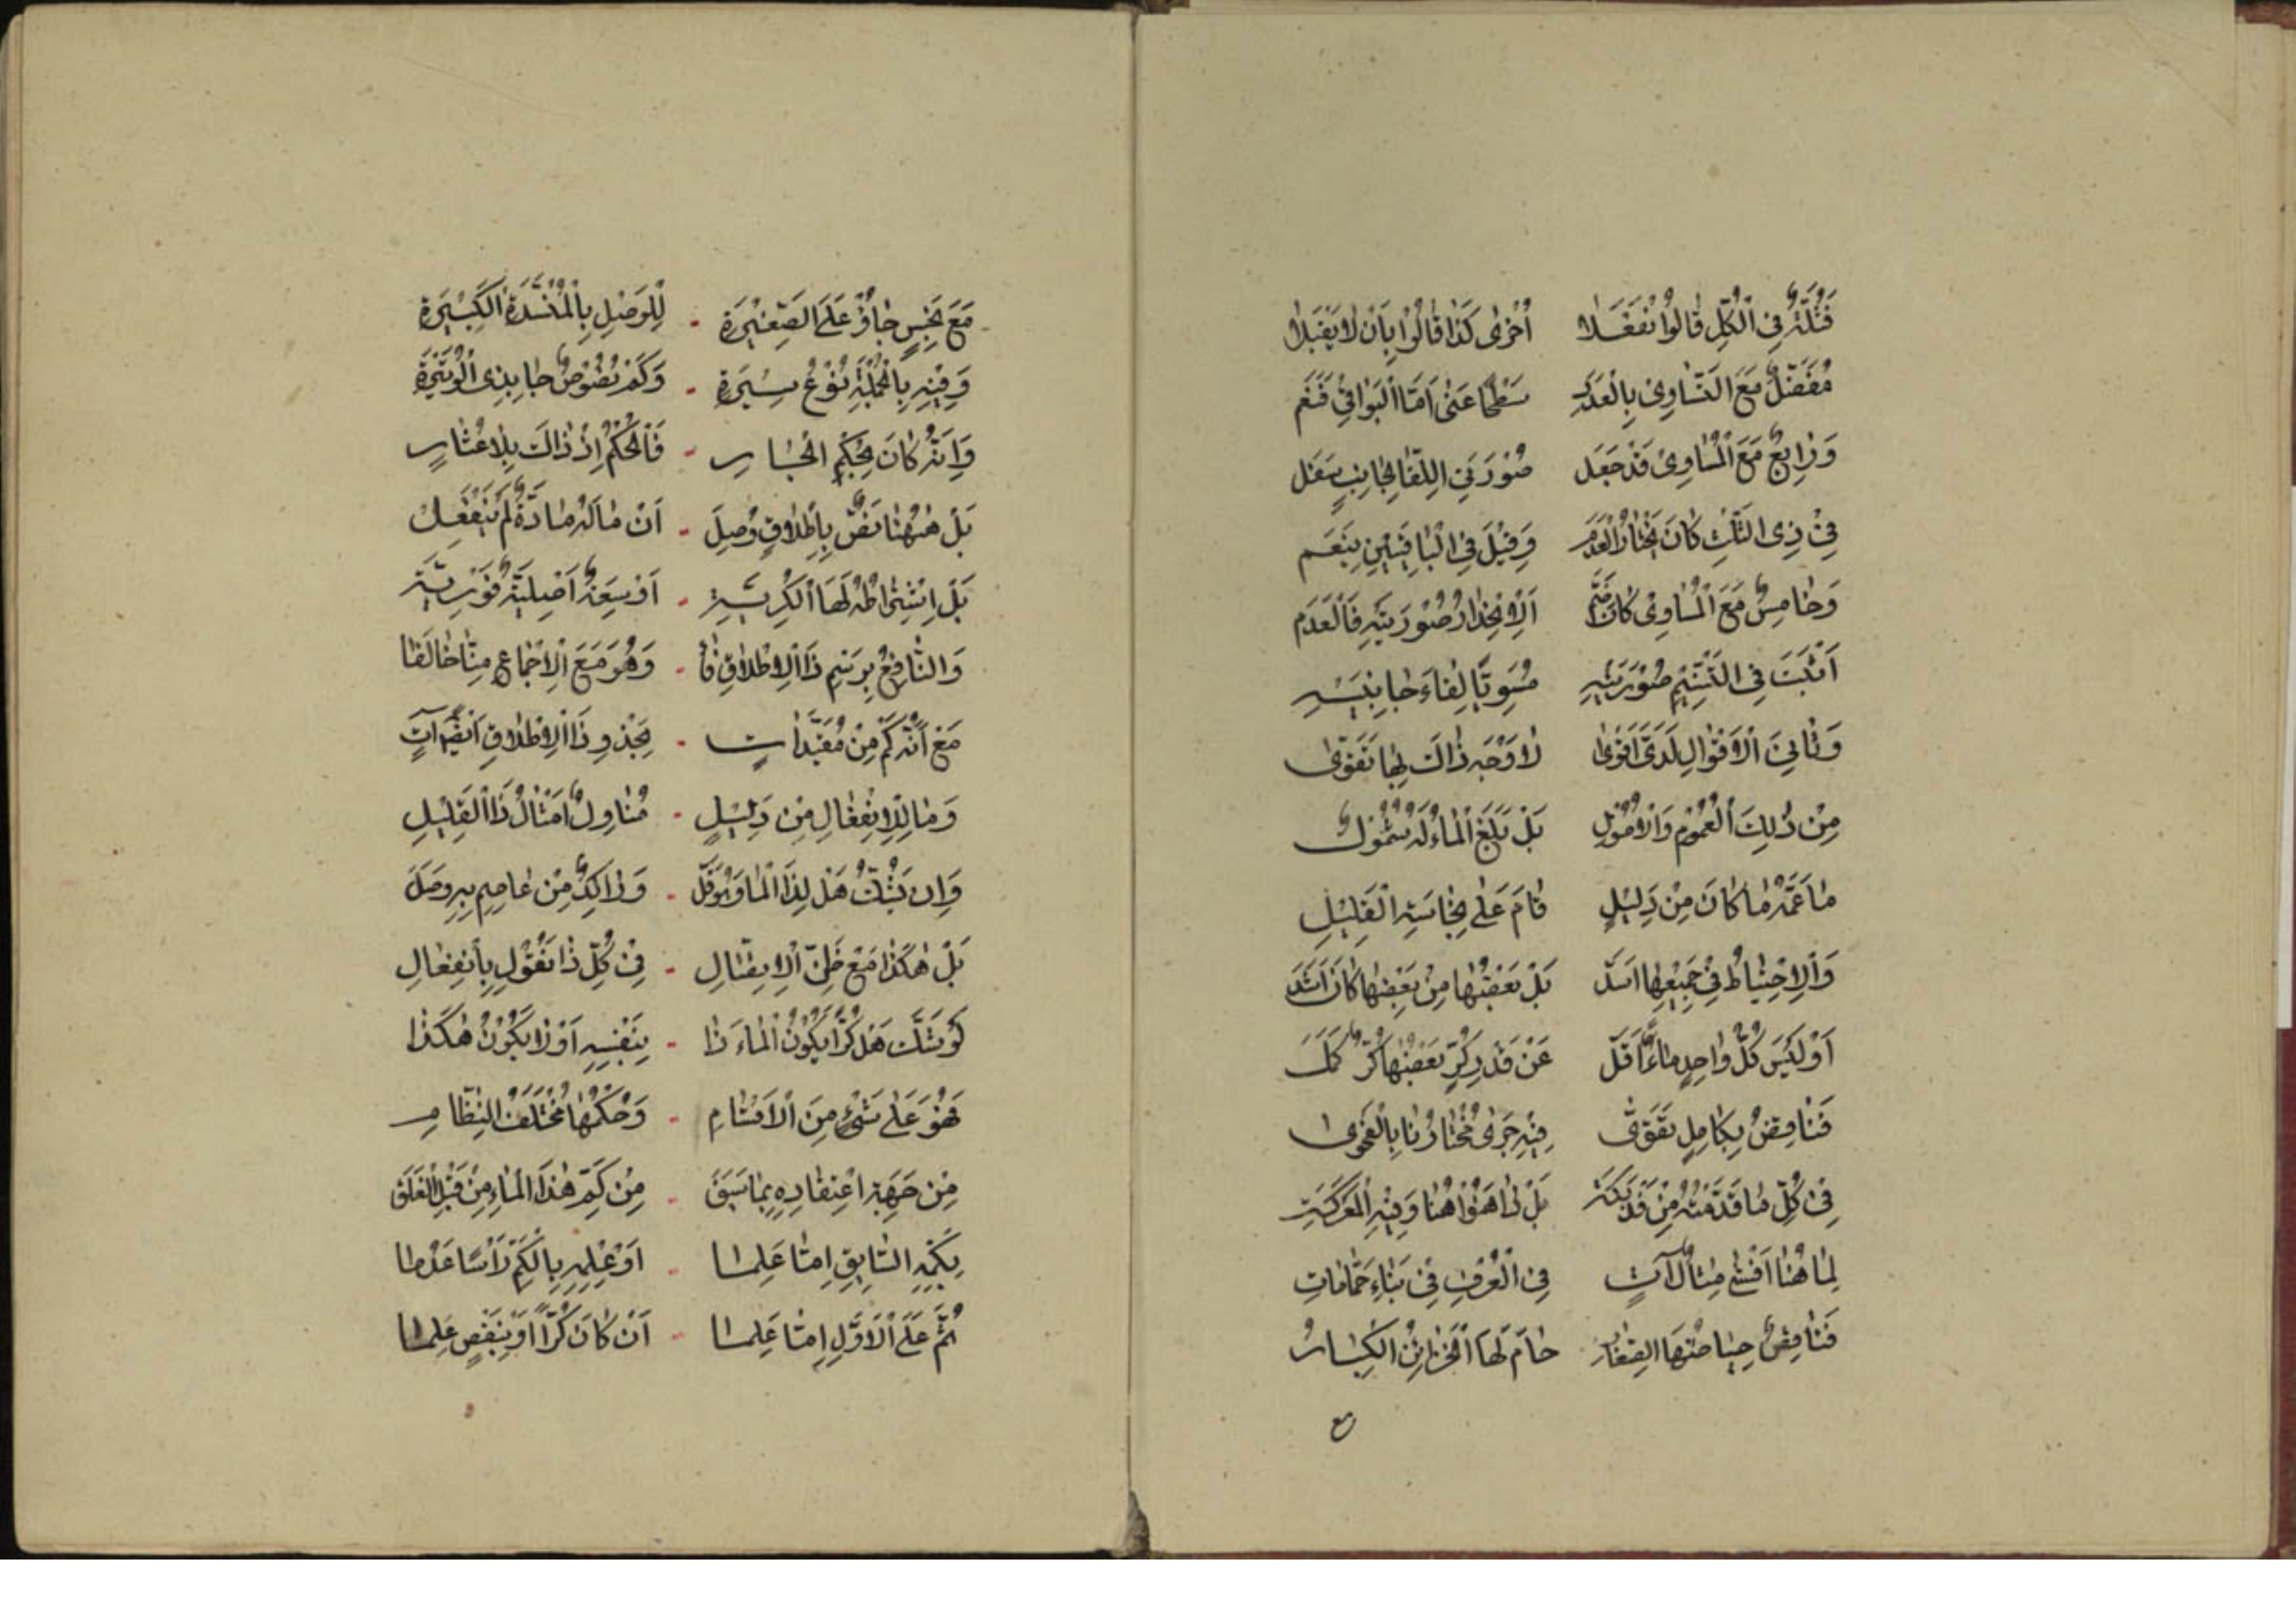 فَثُلَّةٌ فِي الْكُلِّ قَالُوا انْفَعَلَا أُخْرَى كَذَا قَالُوا بِأَنْ لَا يَقْبَلَا
مُفَصِّلٌ مَعَ التَّسَاوِي بِالْعَدَمِ سَطْحًا عَنَى أَمَّا الْبَوَاقِي فَنَعَمْ
وَرَابِعٌ مَعَ الْمُسَاوِي قَدْ جَعَلَ صُورَتَيِ اللِّقَا لِجَانِبٍ سَفَلَ
فِي ذِي الثَّلَاثِ كَانَ يَخْتَارُ الْعَدَمَ وَقِيلَ فِي الْبَاقِيَتَيْنِ بِنَعَمْ
وَخَامِسٌ مَعَ الْمُسَاوِي كَانَ ضَمّ الِانْحِدَارُ صُورَتَيْهِ فَالْعَدَم
أَثْبَتَ فِي التَّسْنِيمِ صُورَتَيْهِ مُسَوِّيًا لِقَاءَ جَانِبَيْهِ
وَثَانِيَ الْأَقْوَالِ لَدَيَّ أَقْوَى لَا وَجْهَ ذَاكَ لِهَا تَقَوَّى
مِنْ ذٰلِكَ الْعُمُومُ وَالْأُصُولِ بَلْ بَلَغَ الْمَاءُ لَهُ شُمُولٌ
مَا عَمَّهُ مَا كَانَ مِنْ دَلِيلٍ قَامَ عَلَى نِجَاسَةِ الْقَلِيلِ
وَالِاحْتِيَاطُ فِي جَمِيعِهَا أَسَدّ بَلْ بَعْضُهَا مِنْ بَعْضِهَا كَانَ أَشَدّ
أَوْ لَيْسَ كُلُّ وَاحِدٍ مَاءً أَقَلّ عَنْ قَدْرِ كُرٍّ بَعْضُهَا كُرٌّ كَمَل
فَنَاقِصٌ بِكَامِلٍ تَقَوَّى فِيهِ جَرَى مُخْتَارُنَا بِالْفَحْوَى
فِي كُلِّ مَا قَدَّمْتُهُ مِنْ بَلْ هُنَا وَفِيهِ الْمَعْرَكَة
لِمَا هُنَا أَفْشَى مِثَالٌ آتٍ فِي الْعُرْفِ فِي بِنَاءِ حَمَّامَاتِ
فَنَاقِصٌ حِيَاضُهَا الصِّغَارُ حَامَ لَهَا الْخَزَائِنُ الْكِبَارُ
مع
مَعَ نَجِسٍ جَاؤُا عَلَى الصَّغِيرَةِ لِلْوَصْلِ بِالْمُنْسَدَّةِ الْكَبِيرَةِ
وَفِيهِ بِالْجُمْلَةِ نَوْعُ سِيرَةٍ وَكَمْ نُصُوصٌ جَا بِذِي الْوَتِيرَةِ
وَأَنَّهُ كَانَ بِحُكْمِ الْجَارِ فَالْحُكْمُ إِذْ ذَاكَ بِلَا عِثَارٍ
بَلْ هٰهُنَا نَصٌّ بِإِطْلَاقٍ وُصِلَ أَنْ مَا لَهُ مَادَّةٌ لَمْ يَنْفَعِلْ
بَلِ اشْتِرَاطُهُ لَهَا الْكُرِّيَّةِ أَوْ سِعَةٌ أَصْلِيَّةٌ فَوْرِيَّة
وَالشَّافِعُ ذَا الْإِطْلَاقِ فَا وَهُوَ مَعَ الْإِجْمَاعِ مِنَّا خَالَفَا
مَعْ أَنَّهُ كَمْ مِنْ مُقَيَّدَاتٍ بِحَذْوِ ذَا الْإِطْلَاقِ أَيْضًا آتٍ
وَمَا لِلِانْفِعَالِ مِنْ دَلِيلٍ مُنَاوِلٌ أَمْثَالَ ذَا الْقَلِيلِ
وَإِنْ يُشَكّ هَلْ لِذَا الْمَا وَهُوَ قَلّ وَرَاكِدٌ مِنْ عَاصِمٍ بِهِ وَصَلَ
بَلْ هٰكَذَا مَعْ ظَنِّ الِاتِّصَالِ فِي كُلِّ ذَا نَقُولُ بِانْفِعَالِ
لَوْ شَكَّ هَلْ كُرًّا يَكُونُ الْمَاءُ ذَا بِنَفْسِهِ أَوْ لَا يَكُونُ هٰكَذَا
فَهُوَ عَلَى شَيْءٍ مِنَ الْأَقْسَامِ وَحُكْمُهَا مُخْتَلَفُ النِّظَامِ
مِنْ جِهَةِ اعْتِقَادِهِ بِمَا سَبَقَ مِنْ كَمِّ هٰذَا الْمَاءِ مِنْ قَبْلِ الْعَلَق
بِكَمِّهِ السَّابِقِ إِمَّا عَلِمَا أَوْ عِلْمِهِ بِالْكَمِّ رَأْسًا عَدِمَا
ثُمَّ عَلَى الْأَوَّلِ إِمَّا عَلِمَا أَنْ كَانَ كُرًّا أَوْ بِنَقْصٍ عَلِمَا